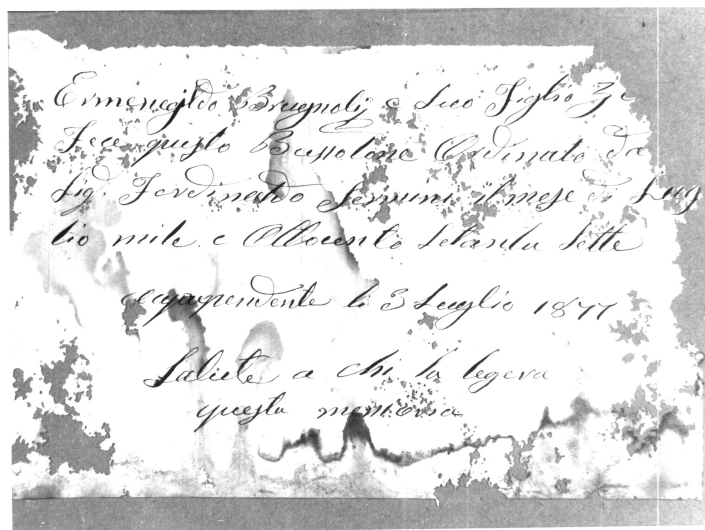 Ermenegildo Brugnoli e suo Figlio
Fece questo Bussolone Ordinato Da
Sig Ferdinando Sermini il mese di Lug
lio mile e Ottocento Setanta Sette
Acquapendente li 3 Luglio 1877
Salute a chi la legera
questa memoria